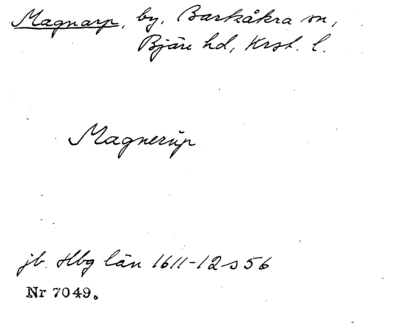 Magnarp, by, Barkåkra sn,
Bjäre hd, Krst. l.
Magnerup
jb. Hbg län 1611-12 s 56
Nr 7049.